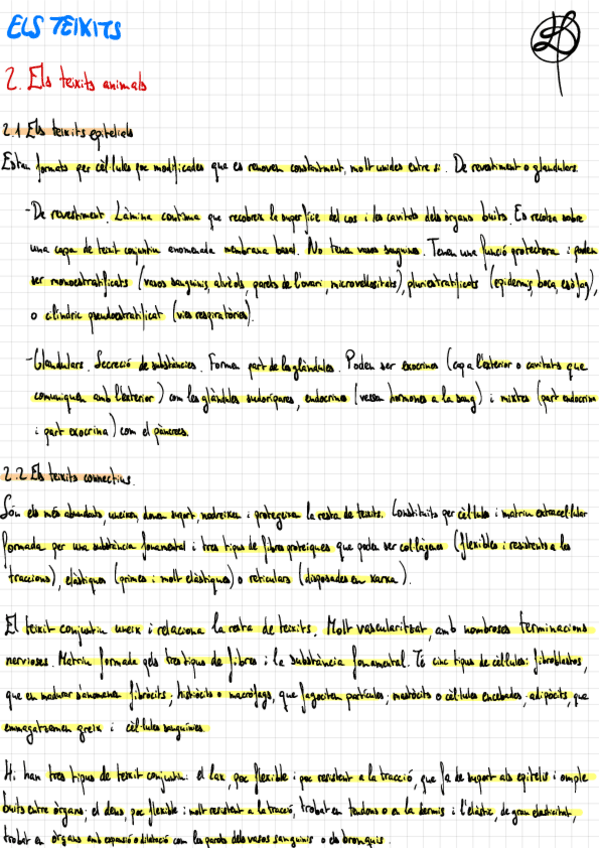 ELS TEIXITS
2. Els teixits animals
2.1 Els teixits epitelials
Estan formats per cèl·lules poc modificades que es renoven constantment, molt unides entre si. De revestiment o glandulars.
-De revestiment. Làmina contínua que recobreix la superfície del cos i les cavitats dels òrgans buits. Es recolza sobre
una capa de teixit conjuntiu anomenada membrana basal. No tenen vasos sanguinis. Tenen una funció protectora i poden
ser monoestratificats (vasos sanguinis, alvèols, parets de l'ovari, microvellositats), pluriestratificats (epidermis, boca, esòfag),
o cilíndric pseudoestratificat (vies respiratòries).
-Glandulars. Secreció de substàncies. Formen part de les glàndules. Poden ser exocrines (cap a l'exterior o cavitats que
comuniquen amb l'exterior) com les glàndules sudorípares, endocrines (vessen hormones a la sang) i mixtes (part endocrina
i part exocrina) com el pàncrees.
2.2 Els teixits connectius.
Són els més abundants, uneixen, donen suport, nodreixen i protegeixen la resta de teixits. Constituïts per cèl·lules i matriu extracel·lular
formada per una substància fonamental i tres tipus de fibres proteiques que poden ser col·làgenes (flexibles i resistents a les
traccions), elàstiques (primes i molt elàstiques) o reticulars (disposades en xarxa).
El teixit conjuntiu uneix i relaciona la resta de teixits. Molt vascularitzat, amb nombroses terminacions
nervioses. Matriu formada pels tres tipus de fibres i la substància fonamental. Té cinc tipus de cèl·lules: fibroblastos,
que en madurar s'anomenen fibròcits; histiòcits o macròfags, que fagociten partícules; mastòcits o cèl·lules encebades; adipòcits, que
emmagatzemen greix i cèl·lules sanguínies.
Hi han tres tipus de teixit conjuntiu: el lax, poc flexible i poc resistent a la tracció, que fa de suport als epitelis i omple
buits entre òrgans; el dens, poc flexible i molt resistent a la tracció, trobat en tendons o en la dermis i l'elàstic, de gran elasticitat,
trobat en òrgans amb expansió o dilatació com les parets dels vasos sanguinis o els bronquis.